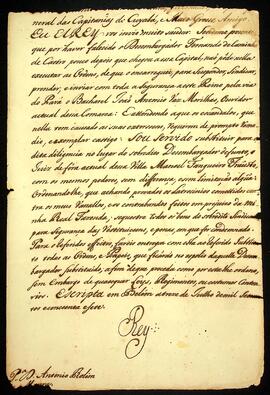 neral das Capitanias de Cuyabá, e Mato Grosso Amigo
Eu ElRey vos invio muito saudar. Sendome prezente
que por haver falecido o Dezembargador Fernando Caminha
de Castro, pouco depois que chegou a essa Capital, não pode nella
executar as Ordens, de que o encarreguei, para suspender, sindicar,
prender, e enviar com toda a Segurança a este Reino pela via
do Pará o Bacharel José Antonio Vaz Morilhas, Ouvidor
actual dessa Comarca: E attendendo aque os escandalos, que
nella tem causado as suas extorsoens, requerem de prompto reme-
dio, e exemplar castigo: Sou Servido substituir para a
dita deligencia no lugar do referido Dezembargador defunto, o
Juiz de fora actual dessa Villa Manoel
com os mesmos poderes, sem differença, nem limitação alguã:
Ordenandolhe, que achando provados os latrocinios comettidos con-
tra os meus Vassallos, ou os contrabandos feitos em prejuizo da mi-
nha Real Fazenda, sequestre todos os bens do referido Sindicado
para segurança das Restituiçoens, e penas, em que for condemnado.
Para o referido effeito, fareis entregar com esta ao referido Substitu-
to todas as Ordens, e Papeis, que ficarão no espolio daquelle Dezem-
bargador substituido, afim de que proceda como por ellas ordeno,
sem Embargo de quaesquer Leys, Regimentos, ou costumes Contra-
rios. Escripta em Belém a
Rey